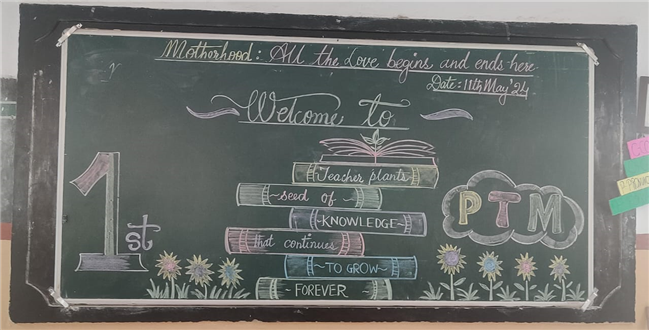 Motherhood: All the Love begins and ends here.
Date: 11th May '24
Welcome to
1st
Teacher plants
seed of
KNOWLEDGE
that continues
TO GROW
FOREVER
PTM